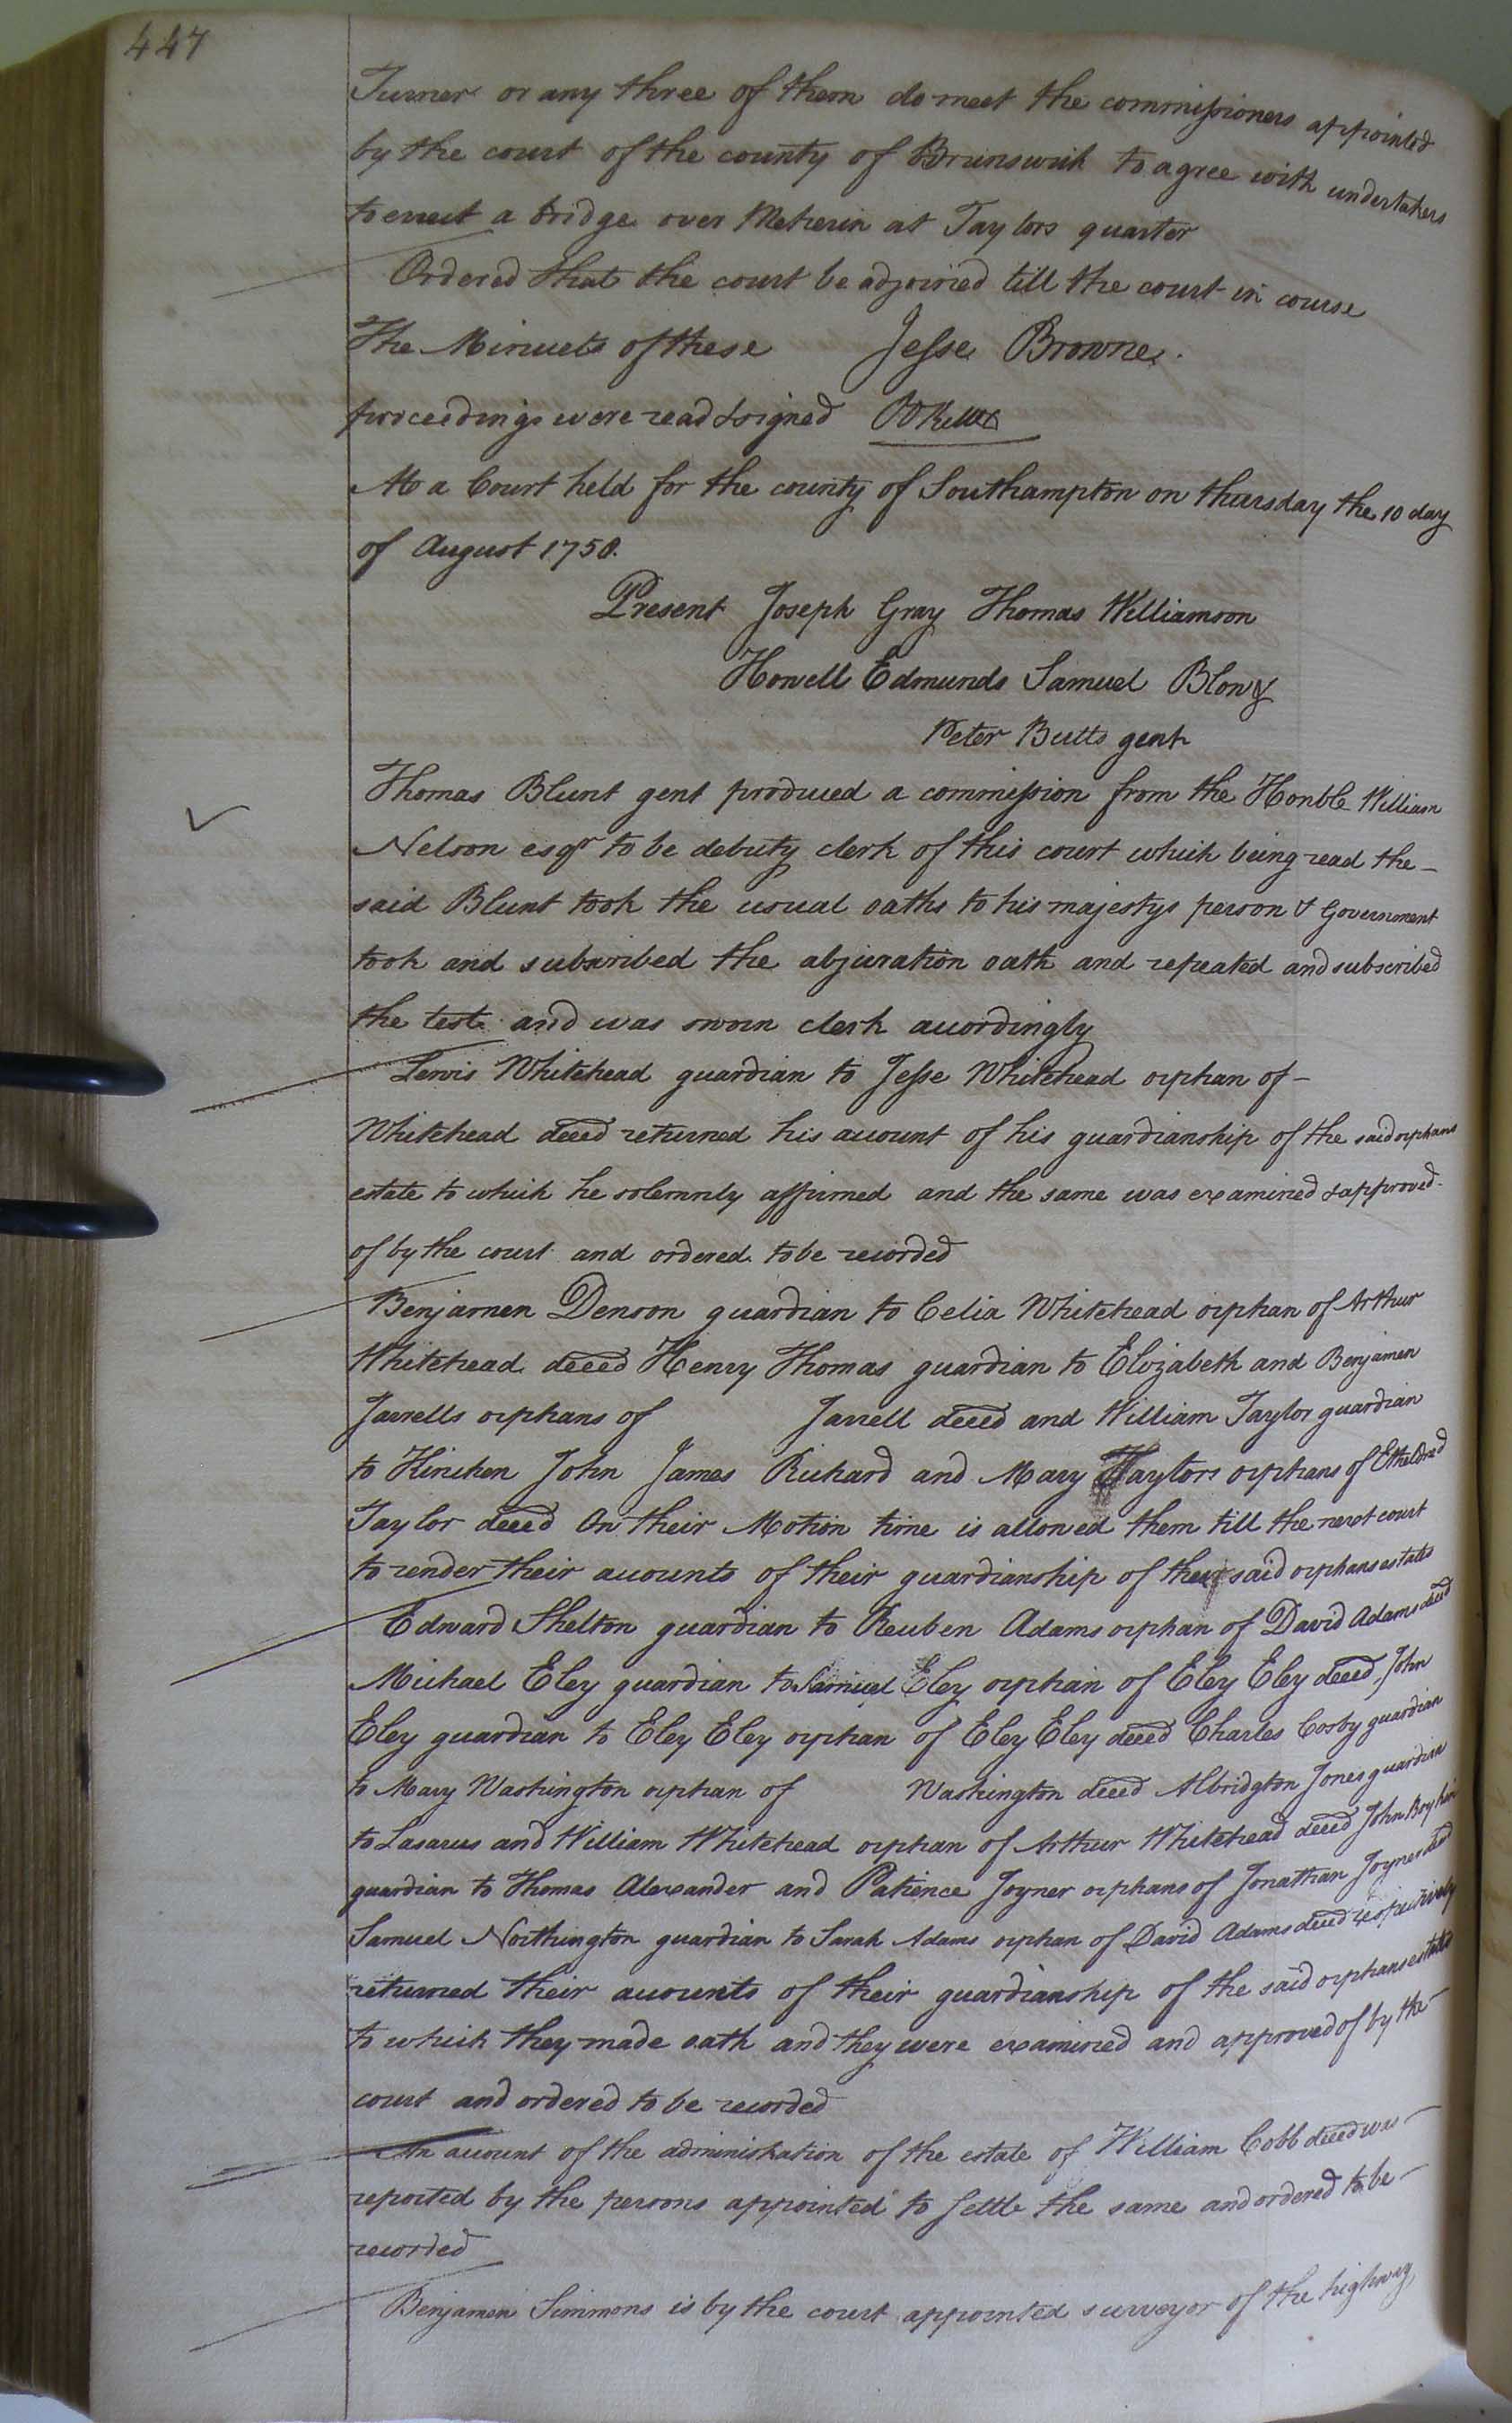 447
Turner or any three of them do meet the commissioners appointed
by the court of the county of Brunswick to agree with undertakers
to errect a bridge over Meherin at Taylors quarter
Ordered that the court be adjorned till the court in course
The Minuets of these Jesse Browne.
proceedings were read & signed
At a Court held for the county of Southampton on thursday the 10 day
of August 1758.
Present Joseph Gray Thomas Williamson
Howell Edmunds Samuel Blow &
Peter Butts gent
Thomas Blunt gent produced a commission from the Honble William
Nelson esqr to be debuty clerk of this court which being read the
said Blunt took the usual oaths to his majestys person & Government
took and subscribed the abjuration oath and repeated and subscribed
the test and was sworn clerk accordingly
Lewis Whitehead guardian to Jesse Whitehead orphan of
Whitehead deced returned his account of his guardianship of the said orphans
estate to which he solemnly affirmed and the same was examined & approved
of by the court and ordered to be recorded
Benjamen Denson guardian to Celia Whitehead orphan of Arthur
Whitehead deced Henry Thomas guardian to Elizabeth and Benjamen
Jarrells orphans of Jarrell deced and William Taylor guardian
to Hinchen John James Richard and Mary Taylors orphans of Etheldred
Taylor deced On their Motion time is allowed them till the next court
to render their accounts of their guardianship of their said orphans estates
Edward Shelton guardian to Reuben Adams orphan of David Adams deced
Michael Eley guardian to Samuel Eley orphan of Eley Eley deced John
Eley guardian to Eley Eley orphan of Eley Eley deced Charles Cosby guardian
to Mary Washington orphan of Washington deced Albridgton Jones guardian
to Lasarus and William Whitehead orphan of Arthur Whitehead deced John Boykin
guardian to Thomas Alexander and Patience Joyner orphans of Jonathan Joyner deced
Samuel Northington guardian to Sarah Adams orphan of David Adams deced respectively
returned their accounts of their guardianship of the said orphans estates
to which they made oath and they were examined and approved of by the
court and ordered to be recorded
An account of the administration of the estate of William Cobb deced was
reported by the persons appointed to settle the same and ordered to be
recorded
Benjamen Simmons is by the court appointed surveyor of the highway